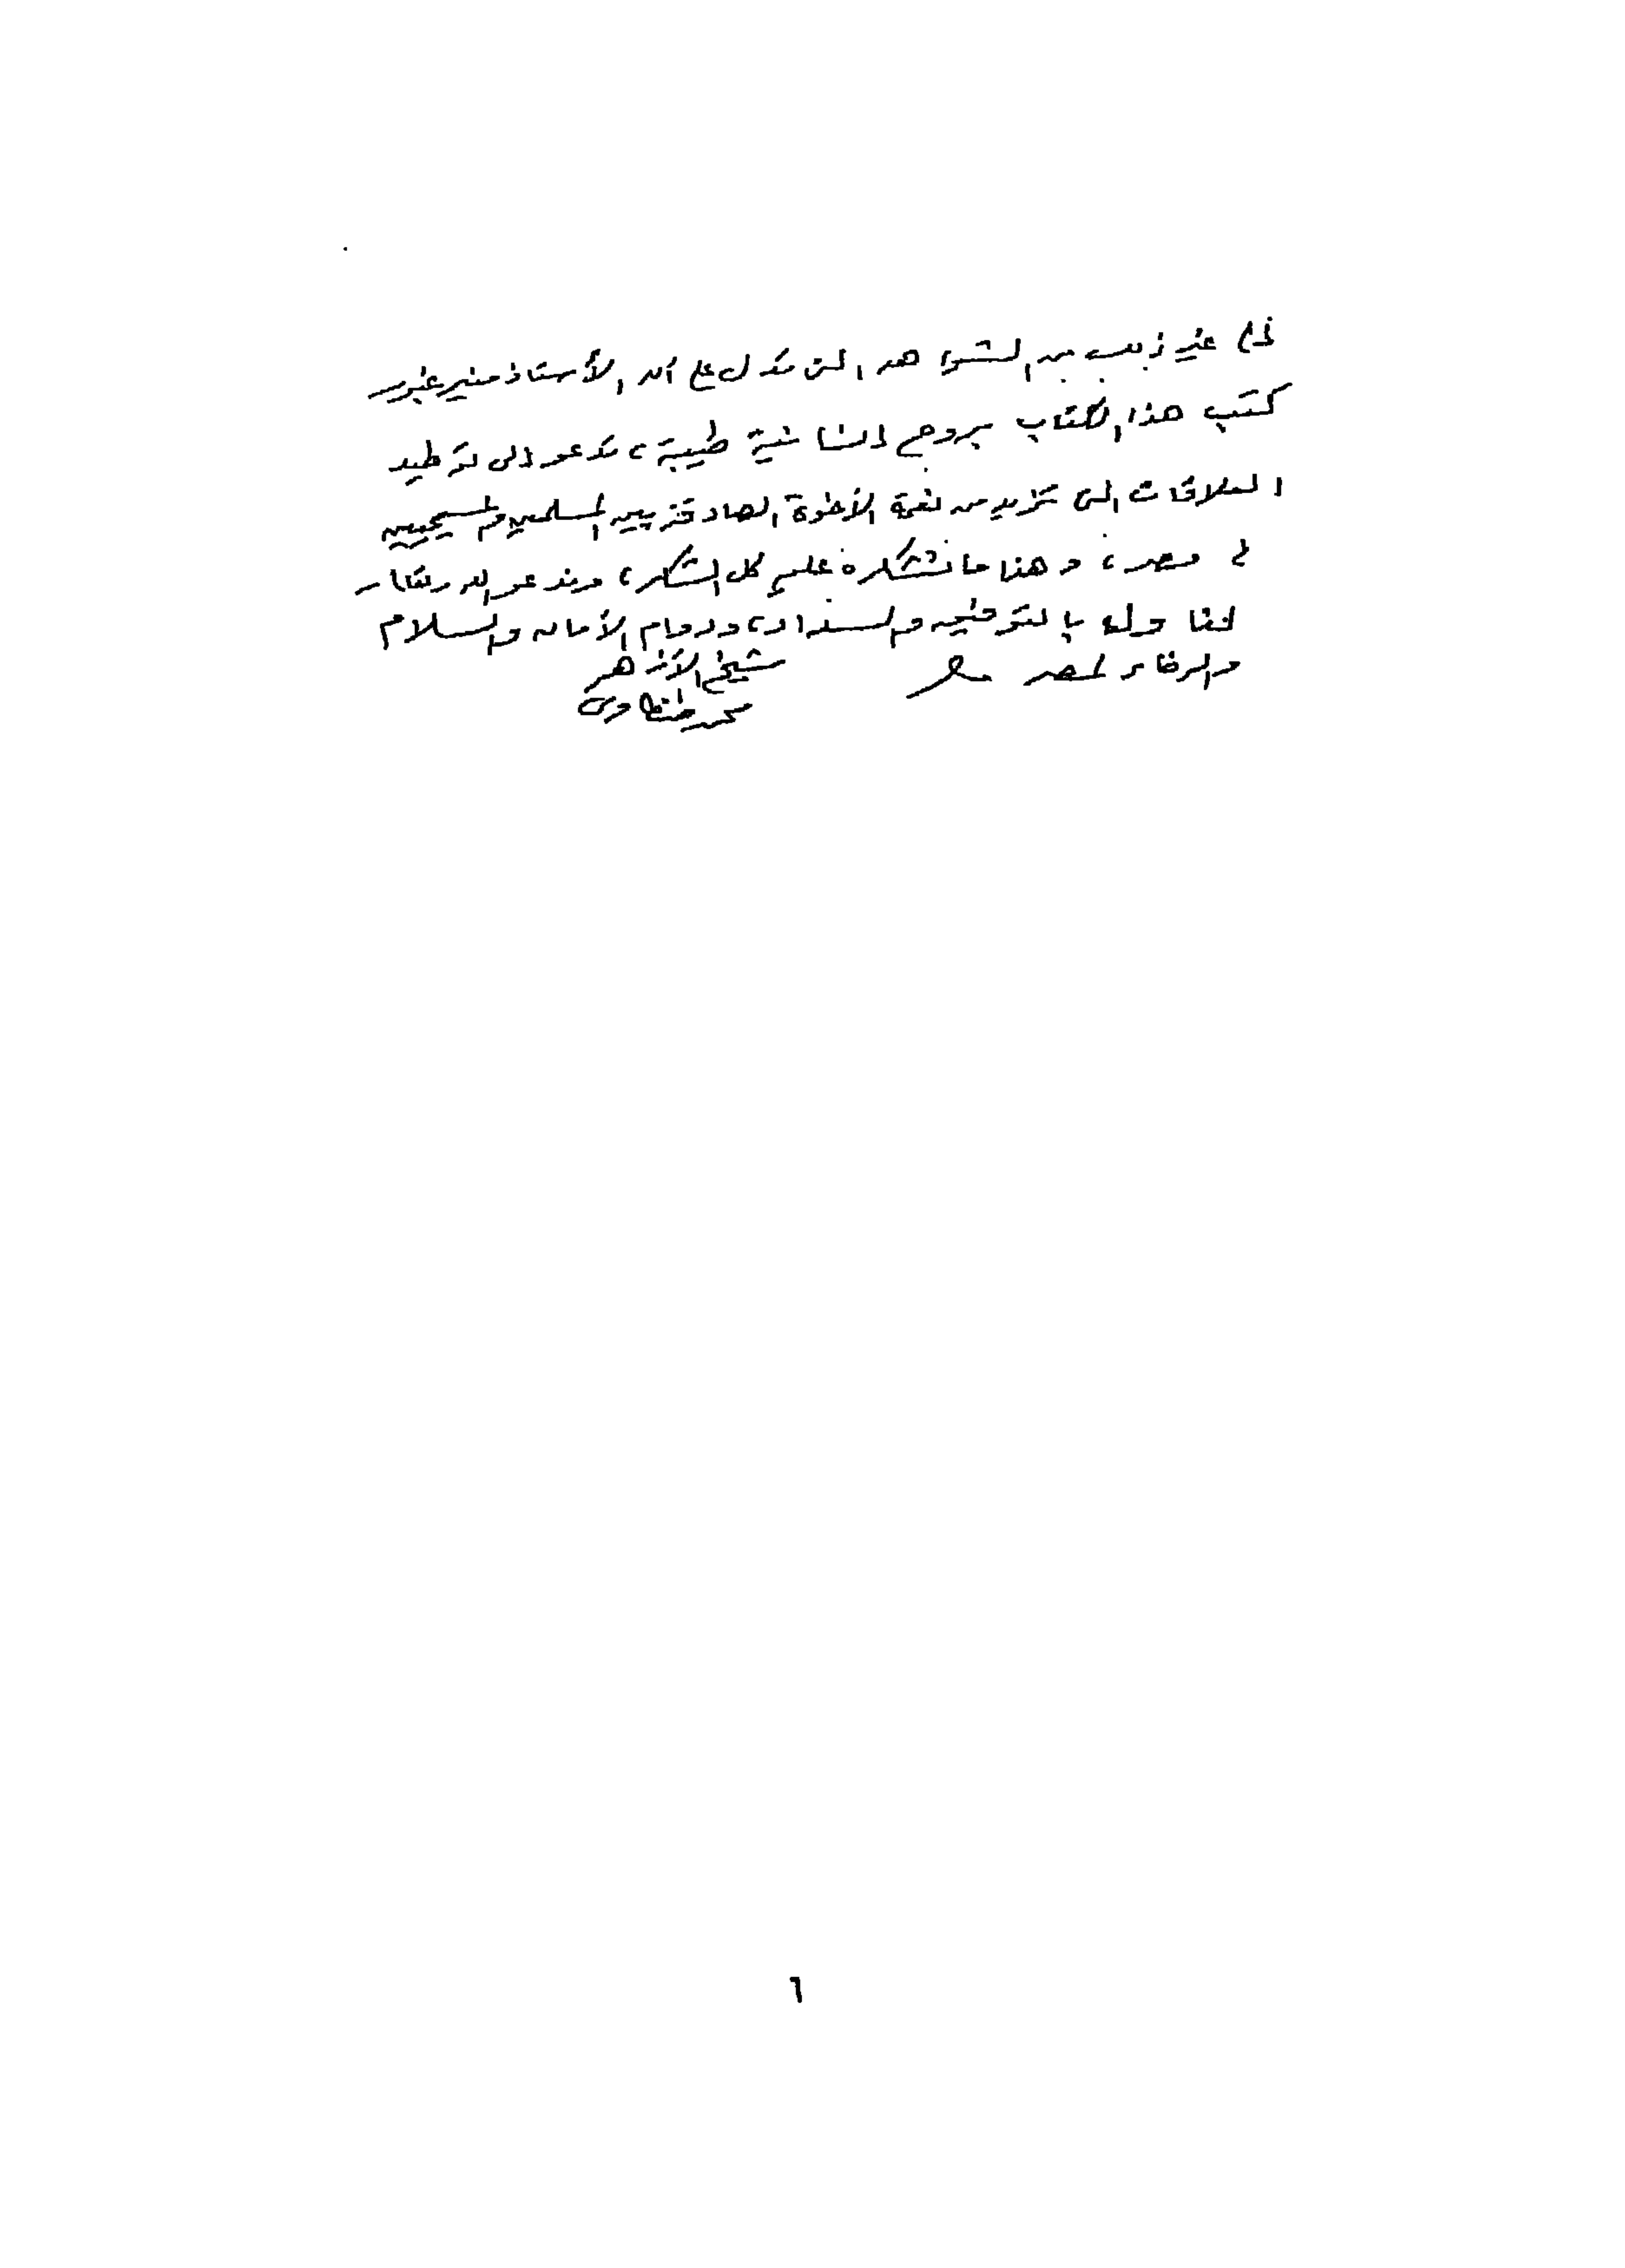 إلى غير ذلك من الشواهد التى تدل على أن الأستاذ منير غبور
كتب هذا الكتاب بروح إنسانية طيبة، تدعو إلى توطيد
العلاقات التى تزيد من نعمة الأخوة الصادقة بين المسلمين والمسيحيين
فى مصر، وهذا ما نشكره عليه كل الشكر، وندعو الله تعالى
لنا وله بالتوفيق والسداد، ودوام الأمان والسلام
والرخاء لمصر
شيخ الأزهر
محمد طنطاوى
٦